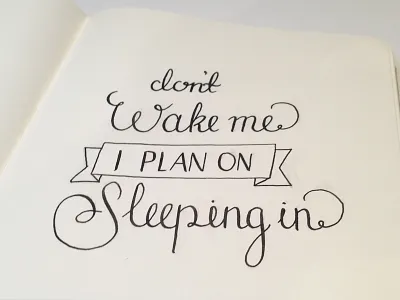 don't
Wake me
I PLAN ON
Sleeping in